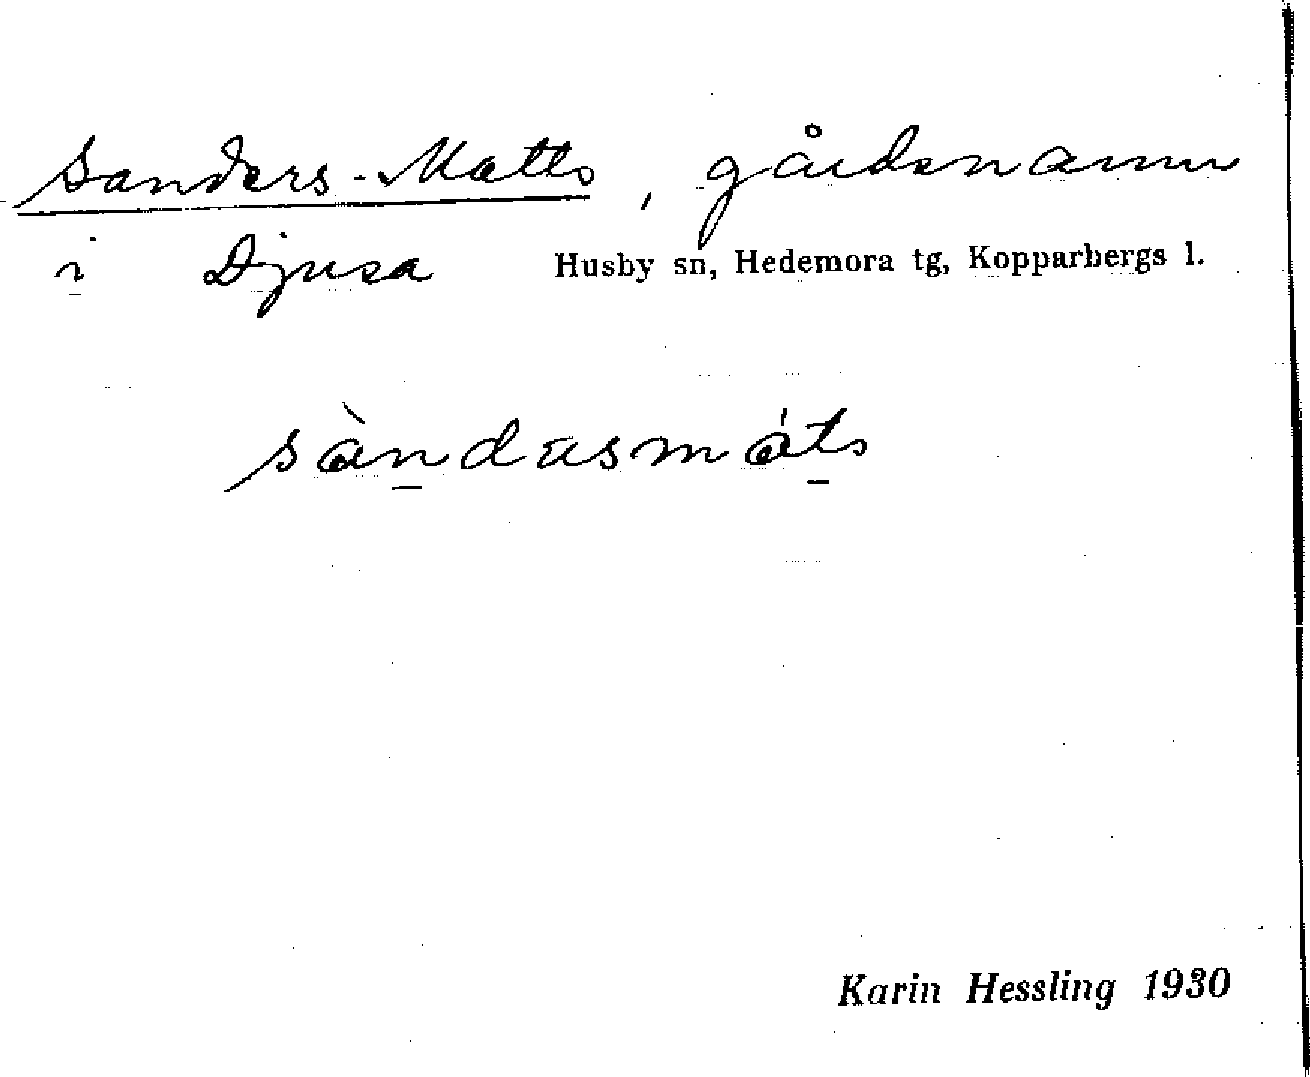 Sanders-Matts, gårdsnamn
i Djusa Husby sn, Hedemora tg, Kopparbergs l.
sàndasmáts
Karin Hessling 1930